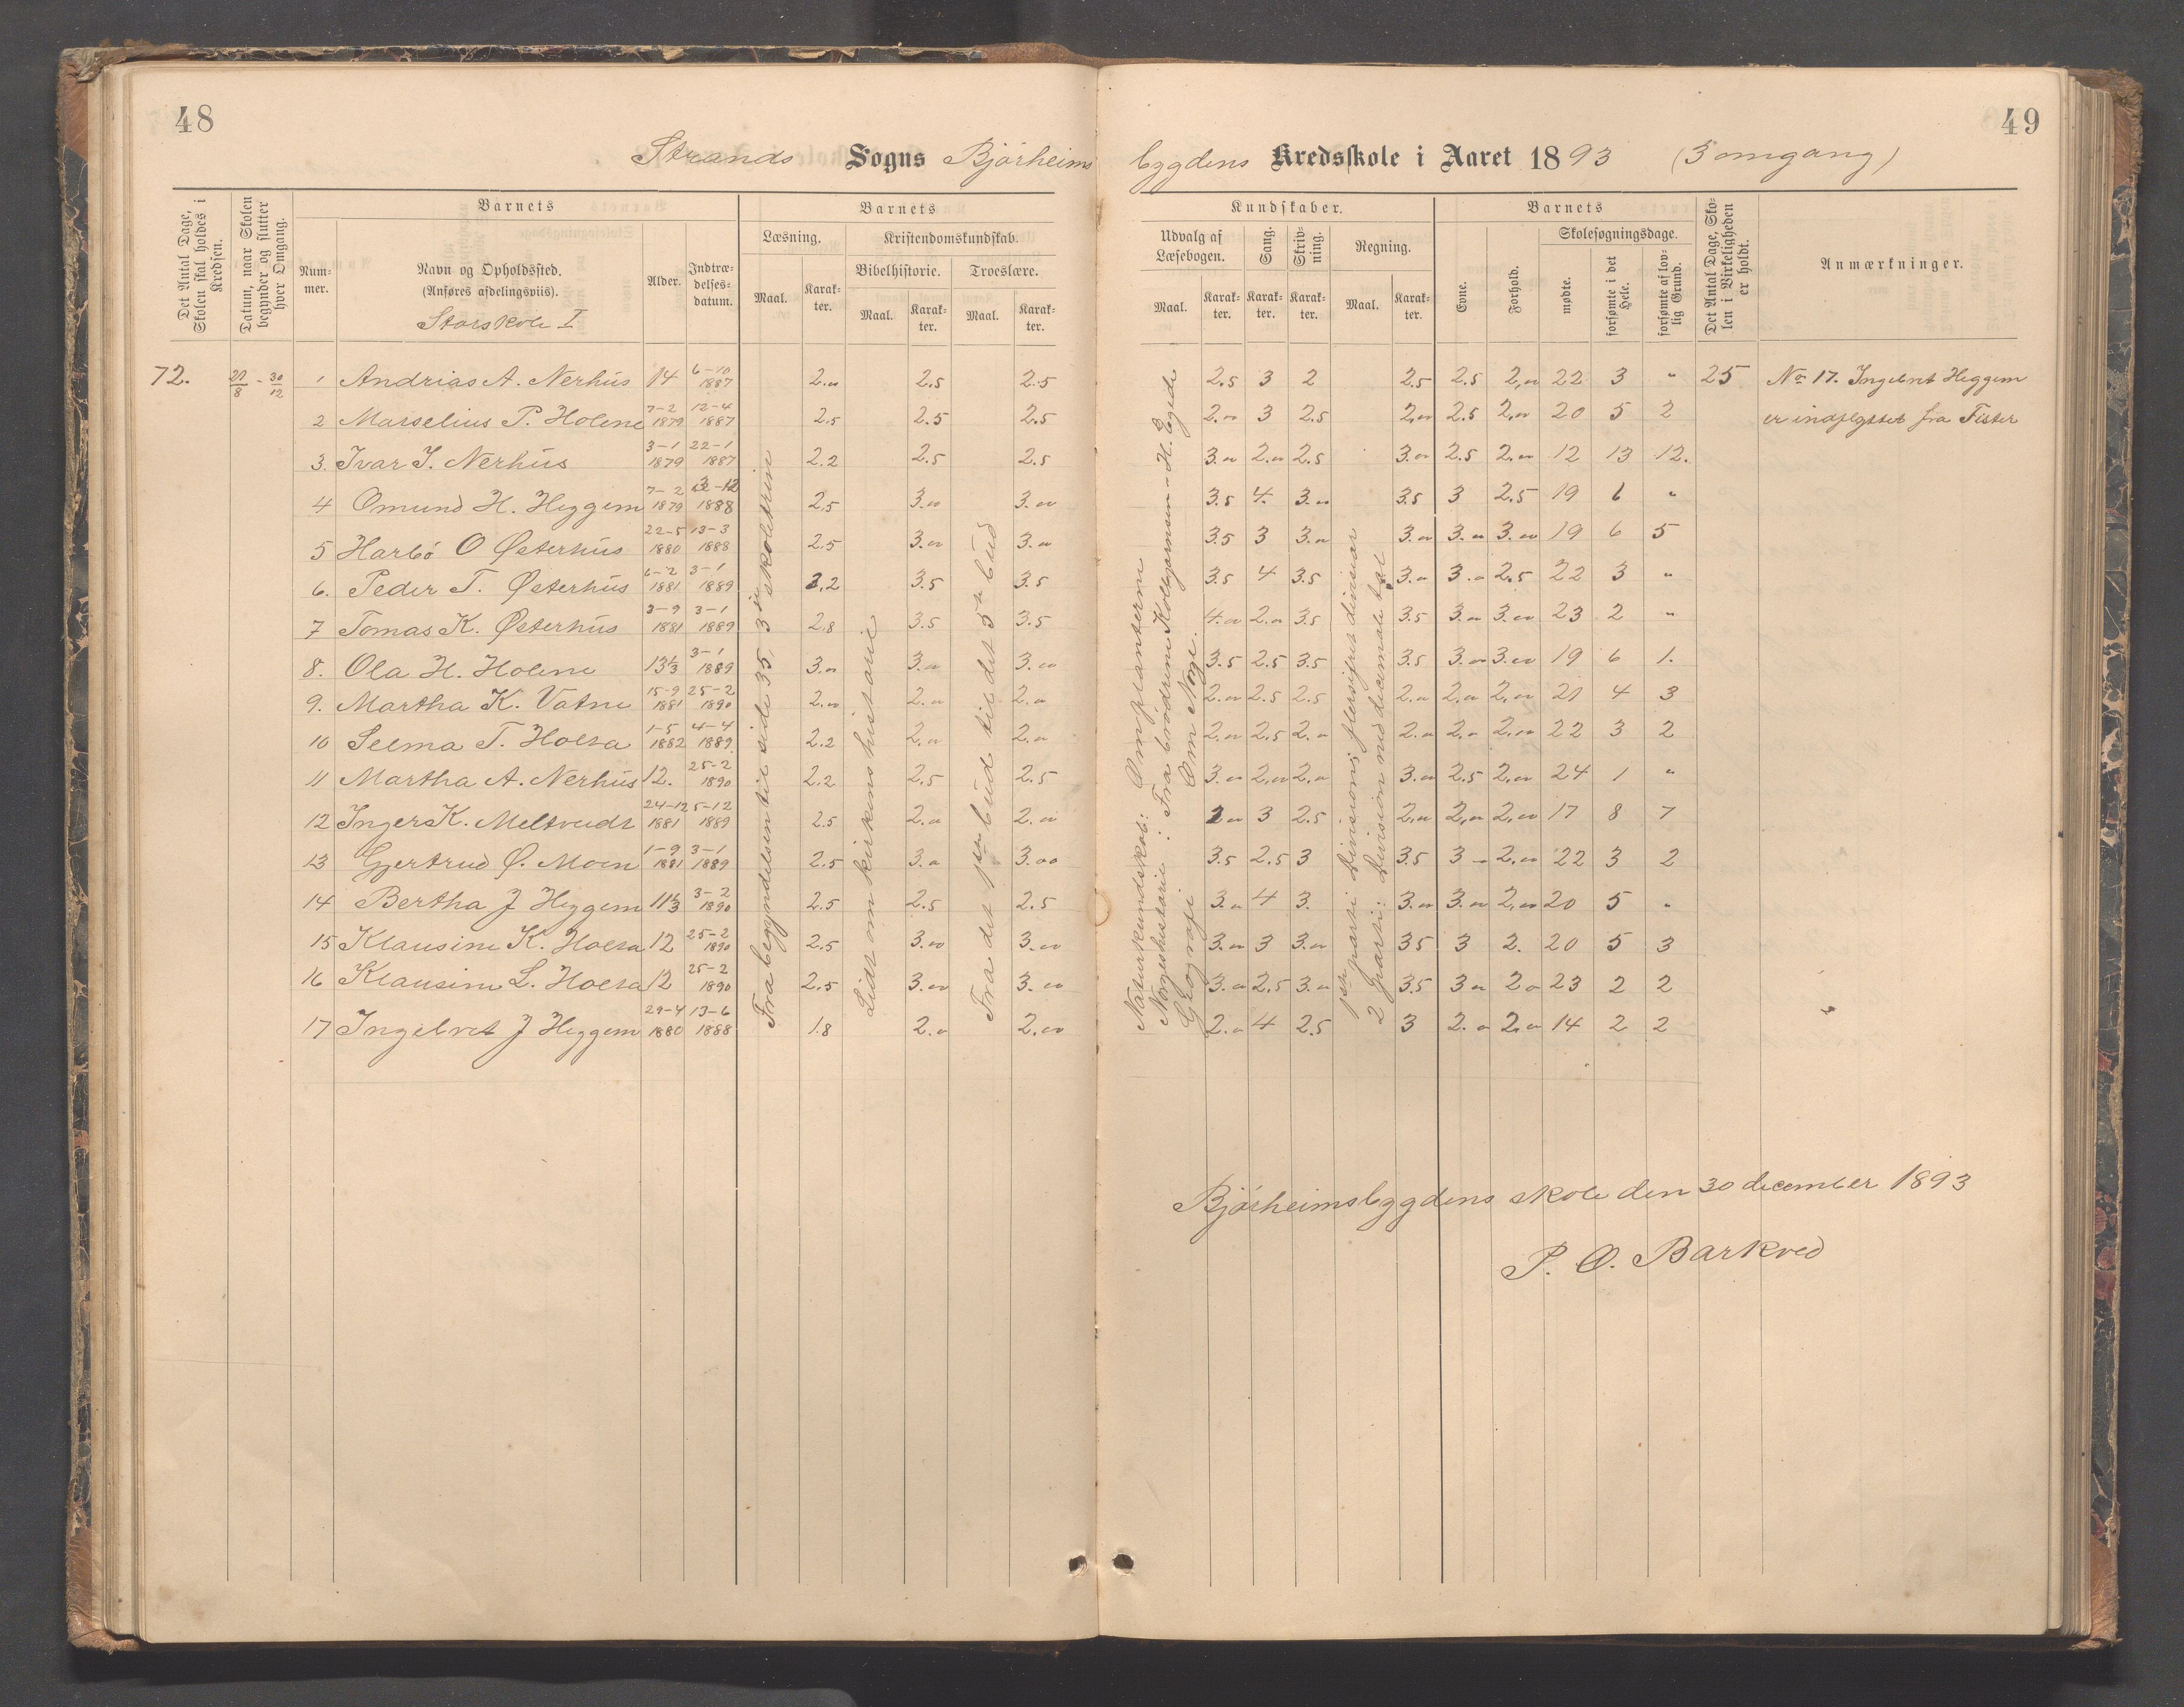 48
49
Strands Sogns Bjørheims
bygdens Kredsskole i Aaret 1893 (3 omgang)
Det Antal Dage, Skolen skal holdes i Kredsen.
Datum, naar Skolen begynder og slutter hver Omgang.
Barnets
Num-
mer.
Navn og Opholdssted.
(Anføres afdelingsviis).
Storskole I
Alder.
Indtræ-
delses-
datum.
Barnets
Læsning.
Maal.
Karak-
ter.
Kristendomskundskab.
Bibelhistorie.
Maal.
Karak-
ter.
Troeslære.
Maal.
Karak-
ter.
Kundskaber.
Udvalg af
Læsebogen.
Maal.
Karak-
ter.
Sang.
Karak-
ter.
Skriv-
ning.
Karak-
ter.
Regning.
Maal.
Karak-
ter.
Barnets
Evne.
Forhold.
Skolesøgningsdage.
mødte.
forsømte i det Hele.
forsømte af lov-
lig Grund.
Det Antal Dage, Sko-
len i Virkeligheden
er holdt.
Anmærkninger.
72. 27/8 - 30/12 1 Andrias A. Nerhus 14 6-10 1887 2.00 2.5 2.5 2.5 3 2 2.5 2.5 2.00 22 3 " 25 No 17. Ingebret Heggem
2 Marselius P. Holene 7-2 1879 12-4 1887 2.5 2.5 2.5 2.00 3 2.5 2.00 2.5 2.00 20 5 2 er indflyttet fra Fister
3. Ivar I. Nerhus 3-1 1879 22-1 1887 2.2 2.5 2.5 3.00 2.00 2.5 3.00 2.5 2.00 12 13 12.
4 Omund H. Heggem 7-2 1879 1888 2.5 3.00 3.00 3.5 4. 3.00 3.5 3 2.5 19 6 "
5 Harbo O Østerhus 22-5 1880 13-3 1888 2.5 3.00 3.00 3.5 3 3.00 3.00 3.00 3.00 19 6 5
6. Peder T. Østerhus 6-2 1881 3-1 1889 3.5 3.5 3.5 4 3.5 3.00 3.00 2.5 22 3 "
7 Tomas K. Østerhus 3-9 1881 3-1 1889 2.8 3.5 3.5 4.00 2.00 3.5 3.5 3.00 3.00 23 2 "
8. Ola H. Holene 13 1/3 3-1 1889 3.00 3.00 3.00 3.5 2.5 3.5 3.5 3.00 3.00 19 6 1.
9. Martha K. Vatne 15-9 1881 25-2 1890 2.00 2.00 2.00 2.00 2.5 2.5 2.00 2.00 2.00 21 4 3
10 Selma T. Holta 1-5 1882 4-4 1889. 2.2 2.00 2.00 2.00 2.5 2.00 2.00 2.00 2.00 22 3 2
11 Martha A. Nerhus 12. 25-2 1890 2.2 2.5 2.5 3.00 2.00 2.00 3.00 2.5 2.00 24 1 "
12 Inger K. Meltveidt 24-12 1881 5-12 1889 2.5 2.00 2.00 3 2.5 2.00 2.00 2.00 17 8 7
13 Gjertrud Ø. Moen 1-9 1881 3-1 1889 2.5 3.00 3.00 3.5 2.5 3 3.5 3 2.00 22 3 2
14 Bertha J Heggem 11 1/3 3-2 1890 2.5 2.5 2.5 3.00 4 3. 3.00 3.00 2.00 20 5 "
15 Klausine K. Holta 12 25-2 1890 2.5 3.00 3.00 3.00 3 3.00 35 3 2. 20 5 3
16 Klausine L. Holta 12 25-2 1890 2.5 3.00 3.00 3.00 2.5 3.00 3.5 3.00 2.0 23 2 2
17 Ingebret J Heggem 29-4 1880 13-6 1888 1.8 2.00 2.00 2.00 4 2.5 3 2.00 2.00 14 2 2
Fra begyndelsen til side 35, 3die skoletrin
Lidt om kirkens historie
Fra det 1ste bud til det 5te bud
Naturkundskab: Om planterne
Norgeshistorie: Fra brødrene Kolbjørnsen - H. Egede
Geografi Om Norge.
1ste parti Divisions flersifret divisor
2 parti: Division med decimale tal
Bjørheimsbygdens skole den 30 december 1893
P. O. Barkved